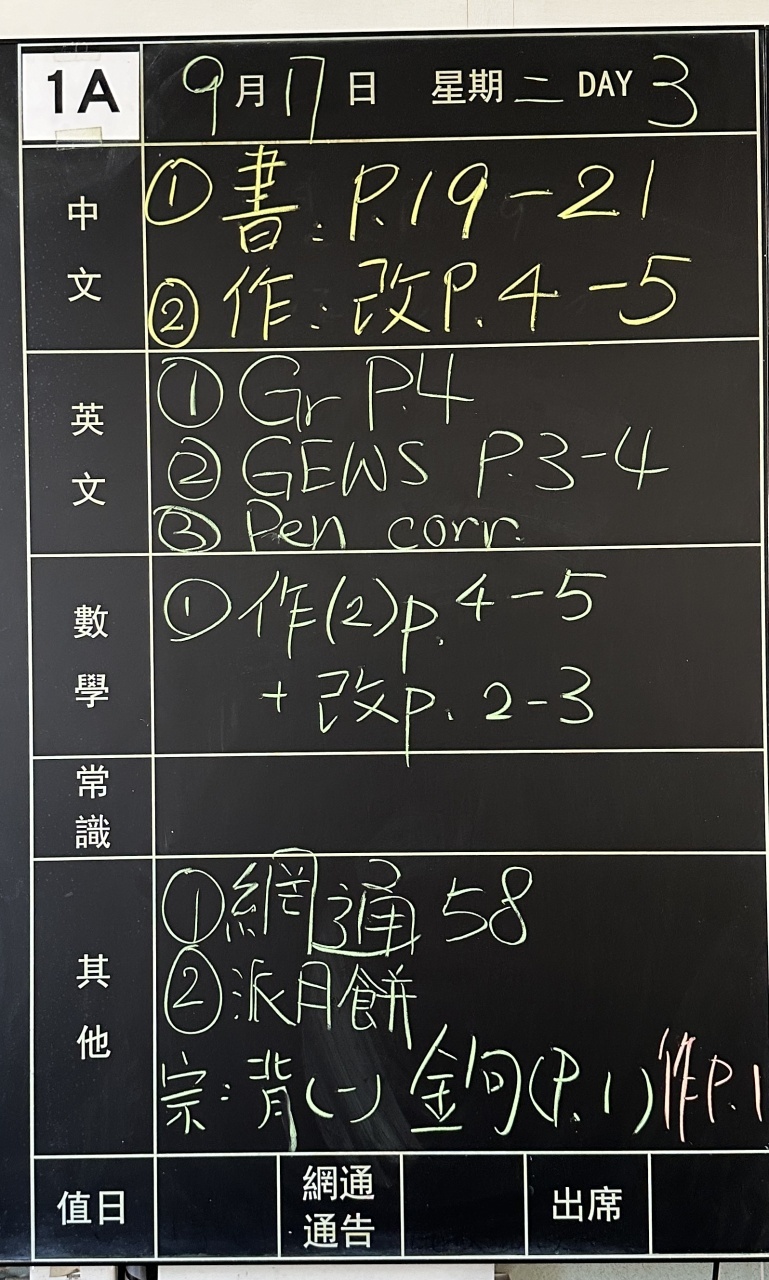 1A 9月17日 星期二 DAY 3
中文
①書:P.19-21
②作:改P.4-5
英文
①Gr P.4
②GEWS P.3-4
③Pen corr.
數學
①作(2)p.4-5
+改p.2-3
常識
其他
①網通58
②派月餅
宗:背(一)金句(P.1)作P.1
值日 網通通告 出席